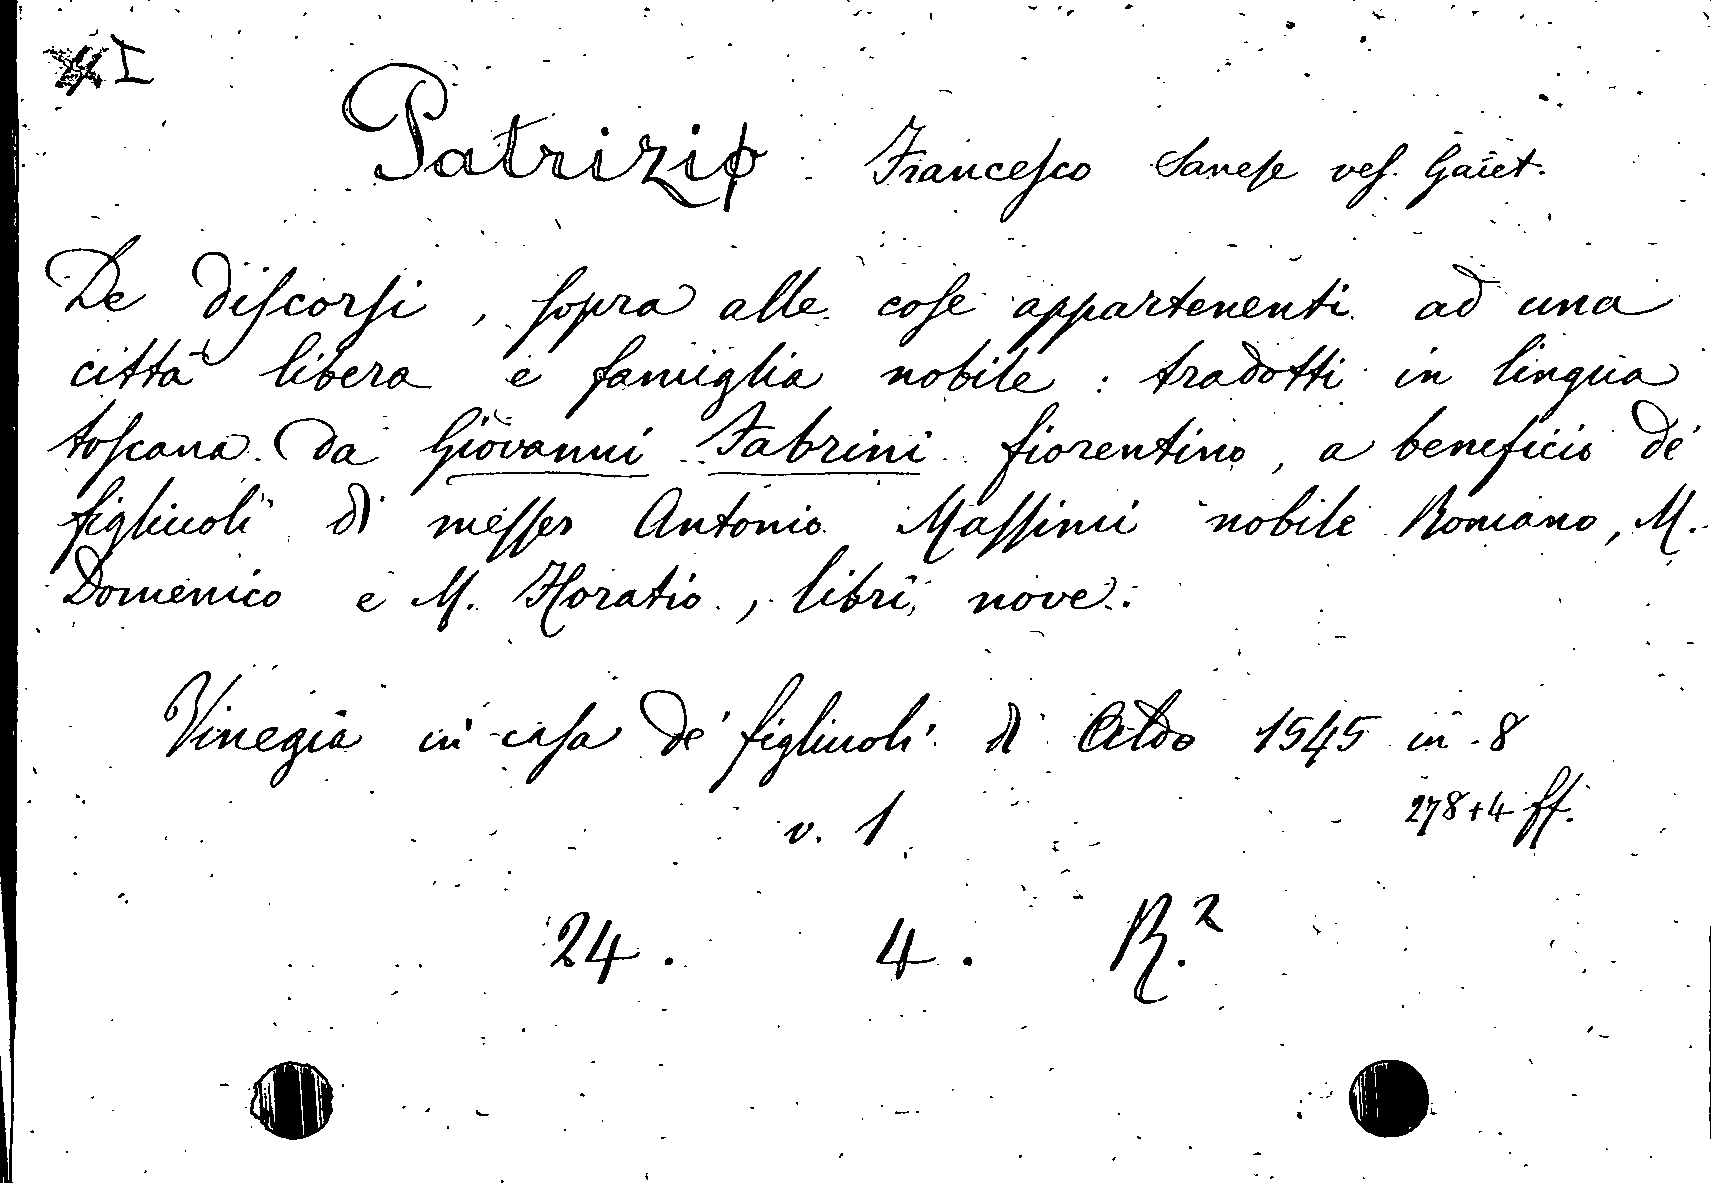 I
Patrizio Francesco Sanese ves. Gaiet.
De discorsi, sopra alle cose appartenenti ad una
città libera e famiglia nobile : tradotti in lingua
toscana da Giovanni Fabrini fiorentino, a beneficio de'
figliuoli di messer Antonio Massimi nobile Romano, M.
Domenico e M. Horatio, libri nove.
Vinegia in casa de' figliuoli di Aldo 1545 in 8
278+4 ff.
v. 1
24. 4. R.²